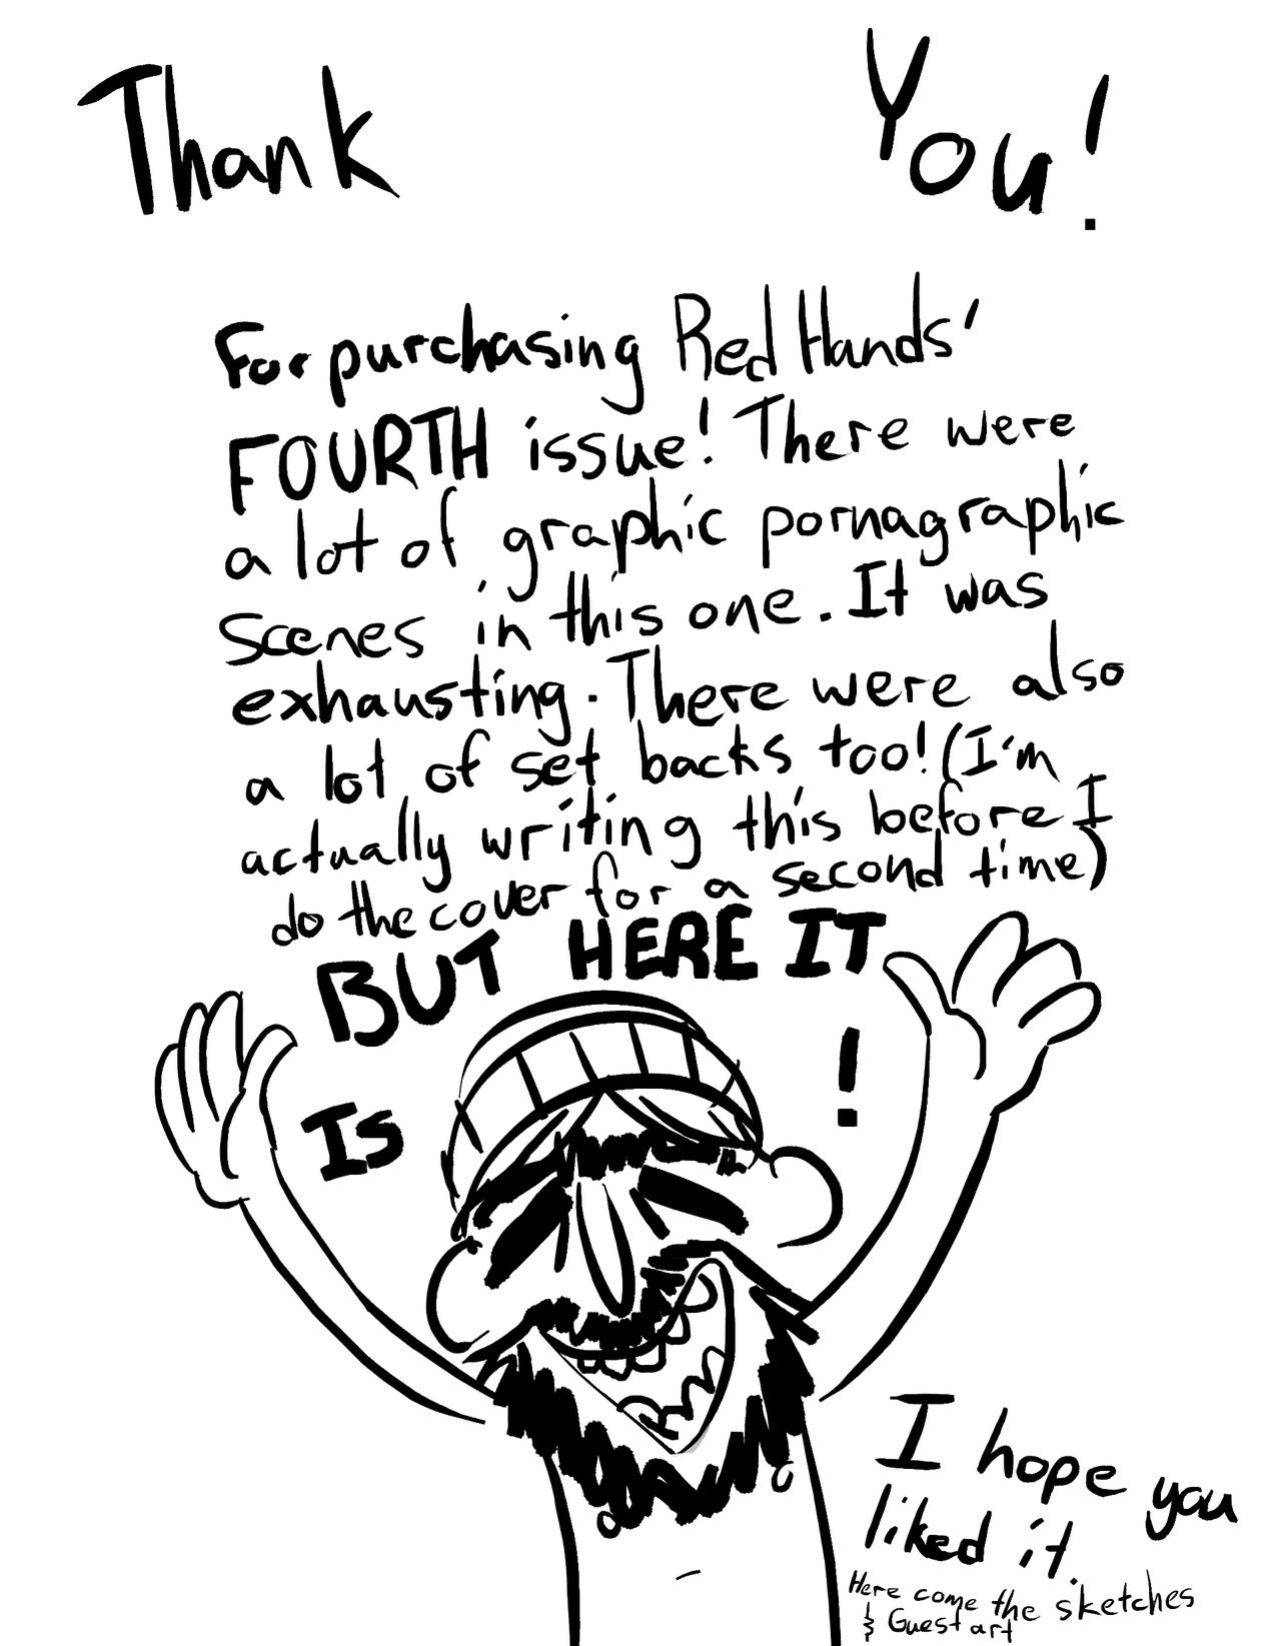 Thank You!
For purchasing Red Hands'
FOURTH issue! There were
a lot of graphic pornagraphic
scenes in this one. It was
exhausting. There were also
a lot of set backs too! (I'm
actually writing this before I
do the cover for a second time)
BUT HERE IT
Is !
I hope you
liked it.
Here come the sketches
& Guest art